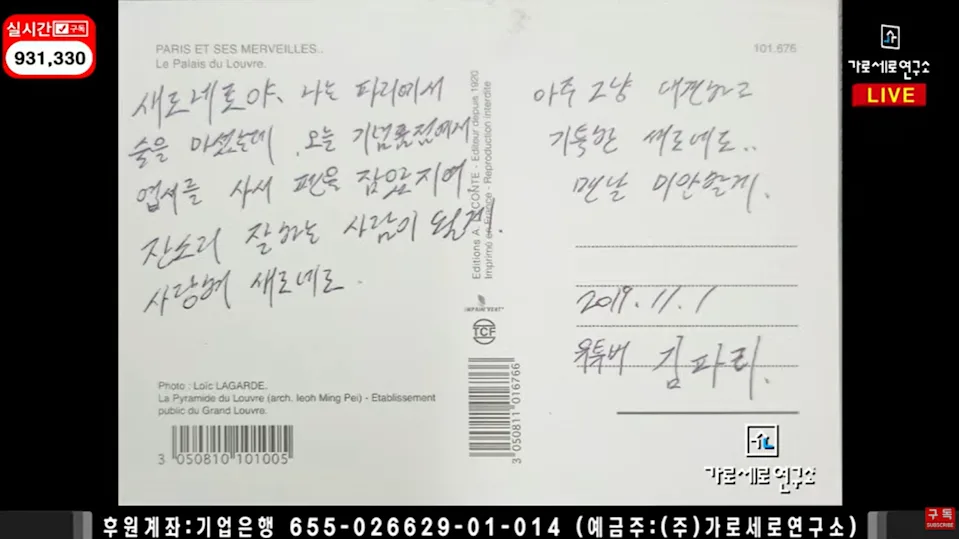 실시간 구독
931,330
가로세로연구소
LIVE
PARIS ET SES MERVEILLES..
Le Palais du Louvre.
101.676
새로네로야. 나는 파리에서
술을 마셨는데. 오는 기념품점에서
엽서를 사서 펜을 잡았지여.
잔소리 잘하는 사람이 될게.
사랑해 새로네로.
아주 그냥 대견하고
기특한 새로네로..
맨날 미안할게.
2019.11.1
유투버 김파리.
Editions A. LECONTE - Editeur depuis 1920
Imprimé en France - Reproduction interdite
IMPRIM'VERT
TCF
Photo : Loïc LAGARDE..
La Pyramide du Louvre (arch. Ieoh Ming Pei) - Etablissement
public du Grand Louvre.
3 050810 101005
3 050811 016766
가로세로연구소
후원계좌:기업은행 655-026629-01-014 (예금주:(주)가로세로연구소)
구독
SUBSCRIBE